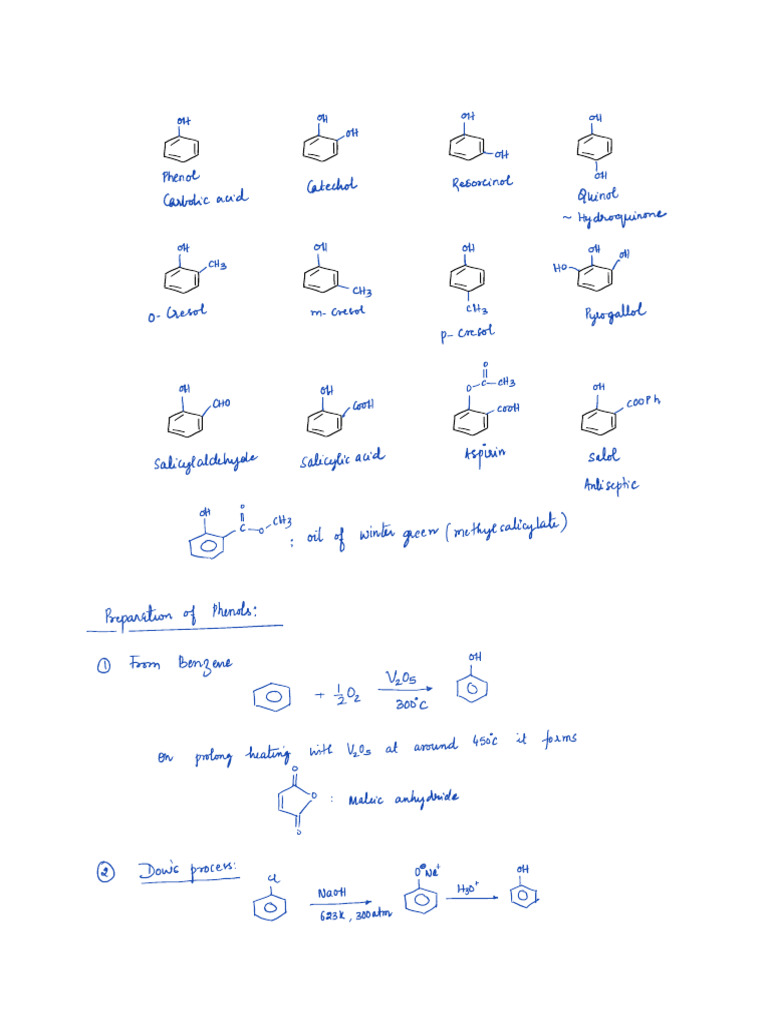 OH OH OH OH
OH OH OH
Phenol Catechol Resorcinol Quinol
Carbolic acid ~ Hydroquinone
OH OH OH OH
CH3 CH3 CH3 HO OH
o-Cresol m-cresol p-cresol Pyrogallol
OH OH O OH
CHO COOH O-C-CH3 COOPh
COOH
Salicylaldehyde Salicylic acid Aspirin Salol
Antiseptic
OH O
C O CH3 : oil of winter green (methylsalicylate)
Preparation of Phenols:
① From Benzene
+ 1/2 O2 V2O5 OH
300°C
on prolong heating with V2O5 at around 450°C it forms
O
O : Maleic anhydride
O
② Dow's process:
Cl NaOH O⊖Na+ H3O+ OH
623K, 300atm